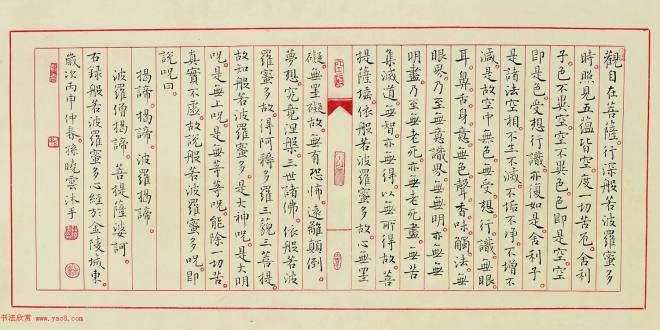 觀自在菩薩行深般若波羅蜜多
時。照見五蘊皆空。度一切苦厄。舍利
子。色不異空。空不異色。色即是空。空
即是色。受想行識亦復如是。舍利子。
是諸法空相。不生不滅。不垢不净。不增不
減。是故空中無色。無受想行識。無眼
耳鼻舌身意。無色聲香味觸法。無
眼界。乃至無意識界。無無明。亦無無
明盡。乃至無老死。亦無老死盡。無苦
集滅道。無智亦無得。以無所得故。菩
提薩埵。依般若波羅蜜多故。心無罣
礙。無罣礙故。無有恐怖。遠離顛倒
夢想。究竟涅槃。三世諸佛。依般若波
羅蜜多故。得阿耨多羅三藐三菩提。
故知般若波羅蜜多。是大神呪。是大明
呪。是無上呪。是無等等呪。能除一切苦。
真實不虛。故說般若波羅蜜多呪。即
說呪曰。
揭諦。揭諦。波羅揭諦。
波羅僧揭諦。菩提薩婆訶
右錄般若波羅蜜多心經於金陵城東
歲次丙申仲春孫曉雲沐手
书法欣赏 www.yac8.com